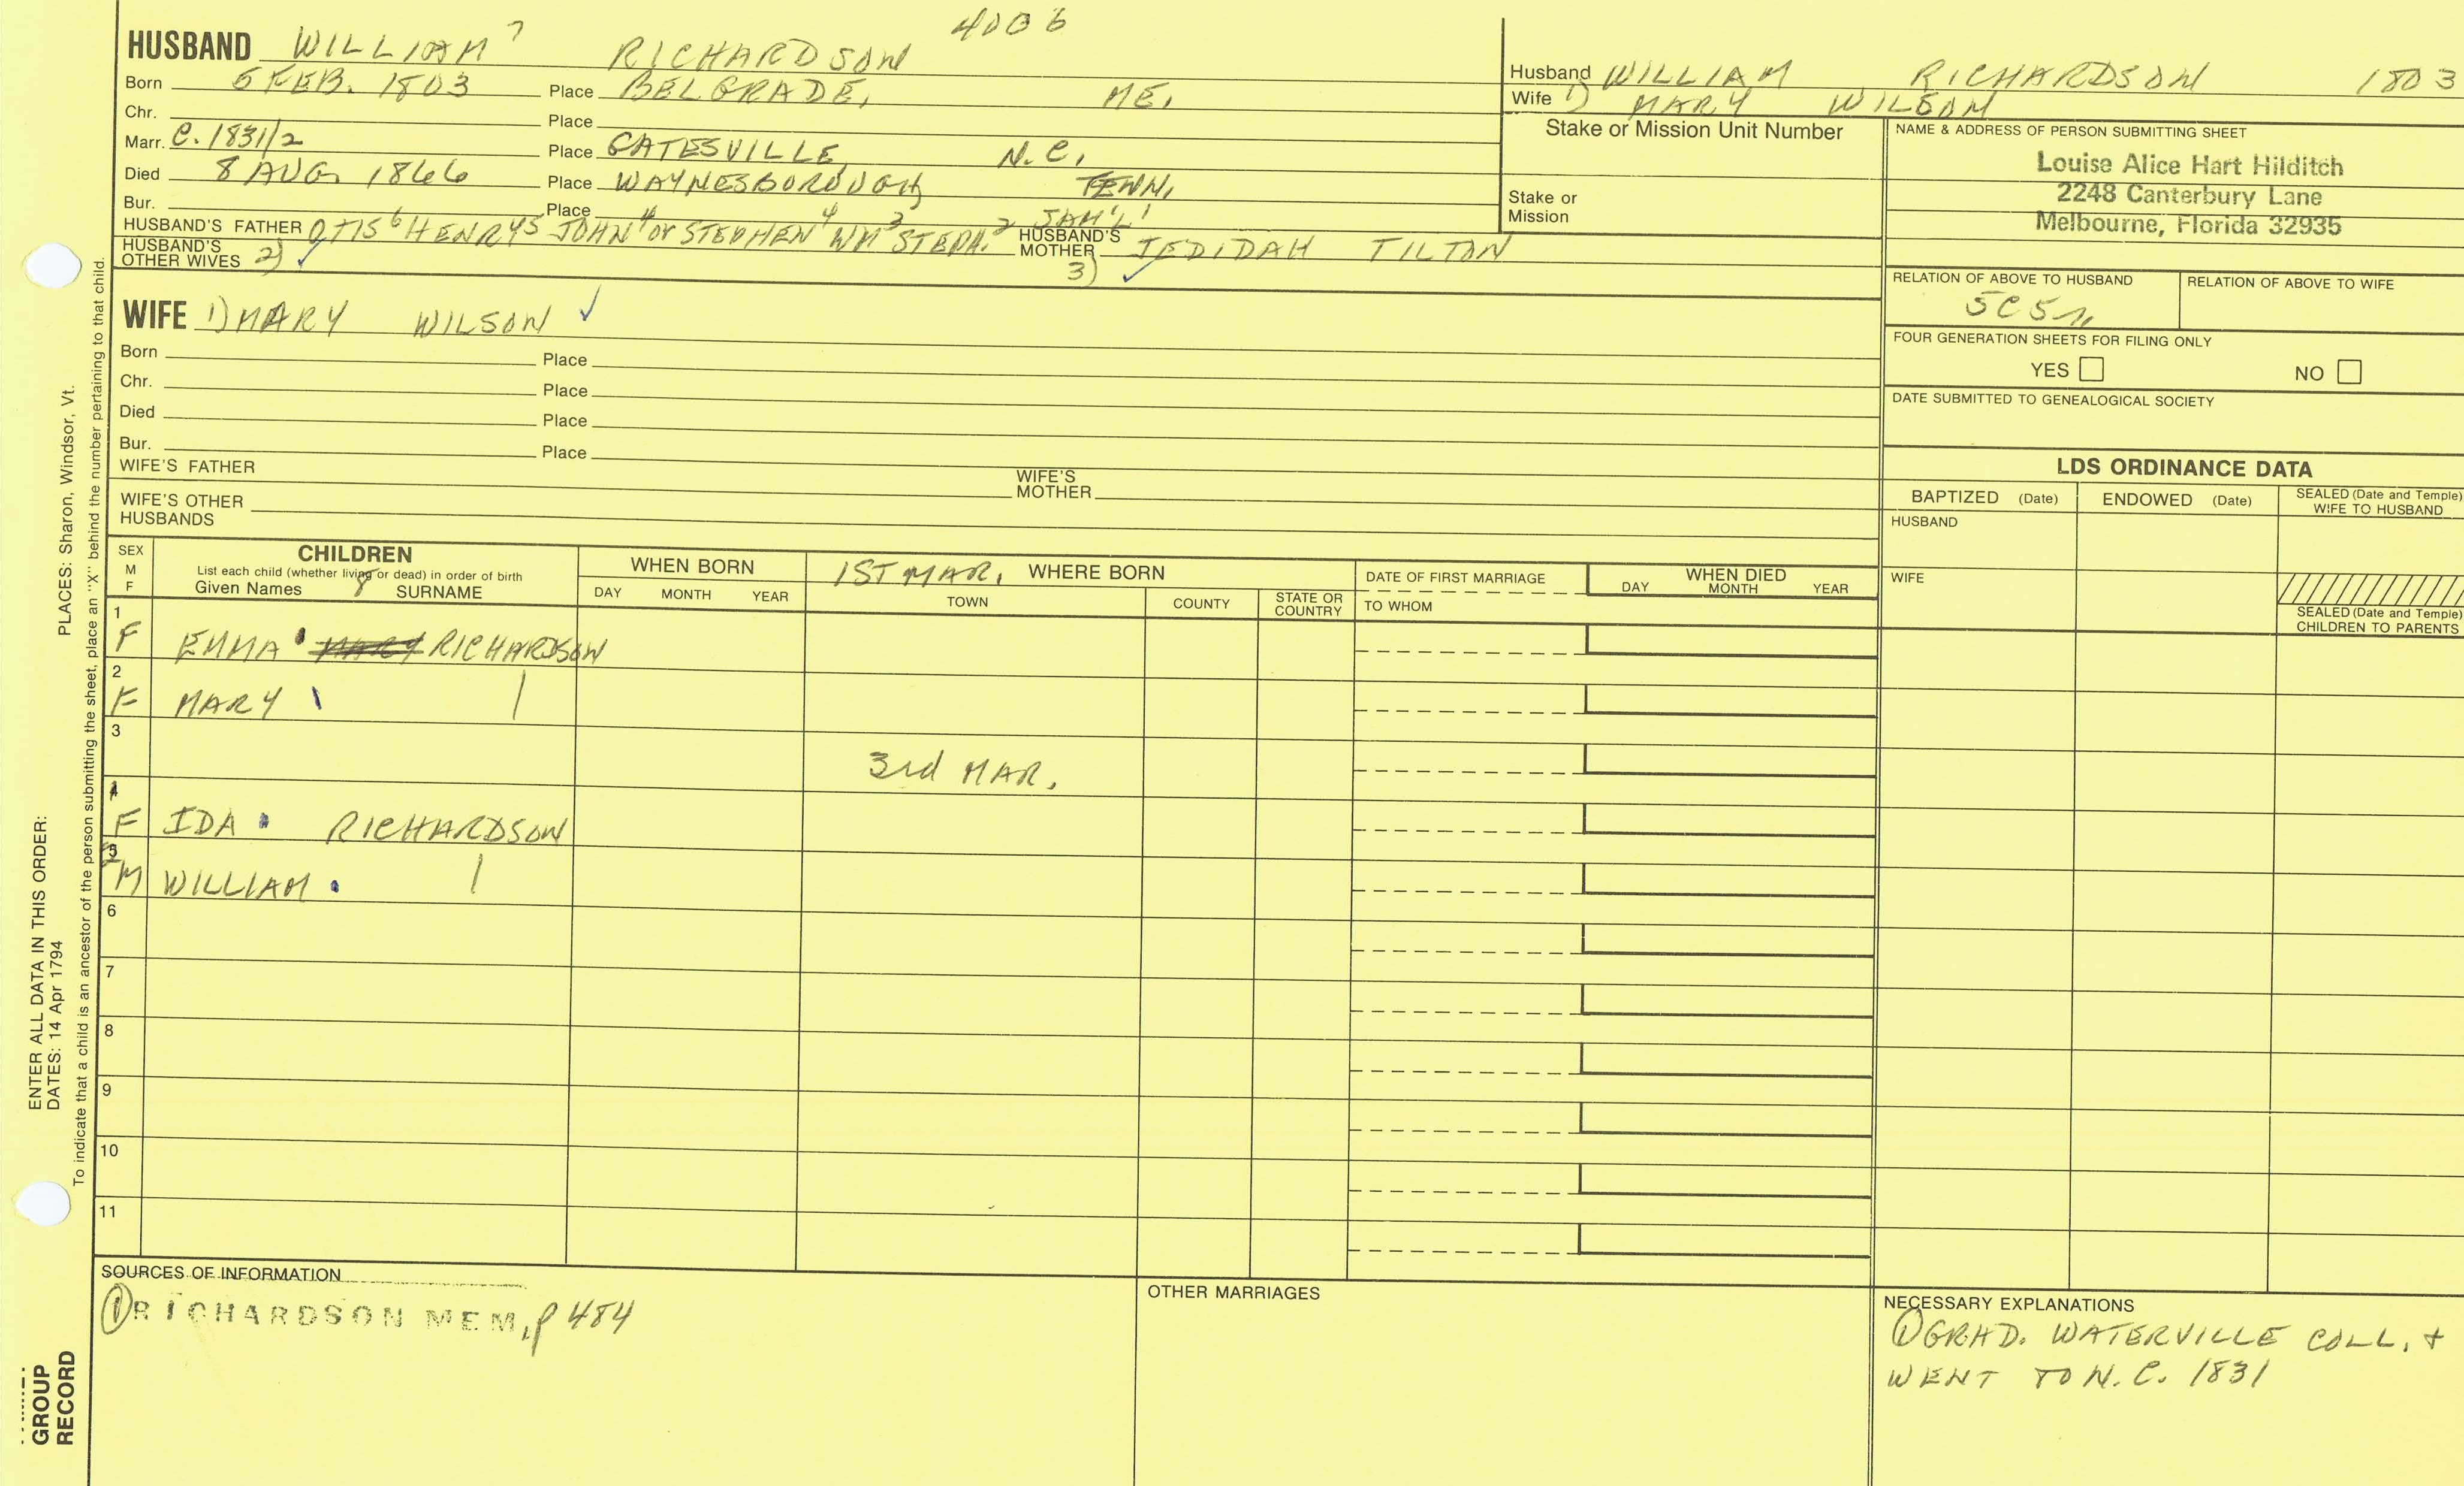 4006
HUSBAND WILLIAM 7 RICHARDSON
Born 5 FEB. 1803 Place BELGRADE, ME.
Chr. Place
Marr. C. 1831/2 Place GATESVILLE, N.C.
Died 8 AUG. 1866 Place WAYNESBOROUGH TENN.
Bur. Place
HUSBAND'S FATHER OTIS 6 HENRY 5 JOHN 4 or STEPHEN 4 WM 3 STEPH. 2 SAM'L 1 HUSBAND'S MOTHER JEDIDAH TILTON
HUSBAND'S OTHER WIVES 2) ✓ 3) ✓
Husband WILLIAM RICHARDSON 1803
Wife 1) MARY WILSON
Stake or Mission Unit Number
Stake or
Mission
NAME & ADDRESS OF PERSON SUBMITTING SHEET
Louise Alice Hart Hilditch
2248 Canterbury Lane
Melbourne, Florida 32935
RELATION OF ABOVE TO HUSBAND RELATION OF ABOVE TO WIFE
5C5r
FOUR GENERATION SHEETS FOR FILING ONLY
YES NO
DATE SUBMITTED TO GENEALOGICAL SOCIETY
WIFE 1) MARY WILSON ✓
Born Place
Chr. Place
Died Place
Bur. Place
WIFE'S FATHER WIFE'S MOTHER
WIFE'S OTHER
HUSBANDS
LDS ORDINANCE DATA
BAPTIZED (Date) ENDOWED (Date) SEALED (Date and Temple)
WIFE TO HUSBAND
HUSBAND
WIFE
SEALED (Date and Temple)
CHILDREN TO PARENTS
SEX
M
F
CHILDREN
List each child (whether living or dead) in order of birth
Given Names 8 SURNAME
WHEN BORN
DAY MONTH YEAR
1ST MAR. WHERE BORN
TOWN COUNTY STATE OR COUNTRY
DATE OF FIRST MARRIAGE
TO WHOM
WHEN DIED
DAY MONTH YEAR
1
F EMMA MARY RICHARDSON
2
F MARY |
3
3rd MAR.
4
F IDA RICHARDSON
5
M WILLIAM |
6
7
8
9
10
11
SOURCES OF INFORMATION
① RICHARDSON MEM, p 484
OTHER MARRIAGES
NECESSARY EXPLANATIONS
① GRAD. WATERVILLE COLL. +
WENT TO N.C. 1831
ENTER ALL DATA IN THIS ORDER:
DATES: 14 Apr 1794
PLACES: Sharon, Windsor, Vt.
To indicate that a child is an ancestor of the person submitting the sheet, place an "X" behind the number pertaining to that child.
GROUP
RECORD